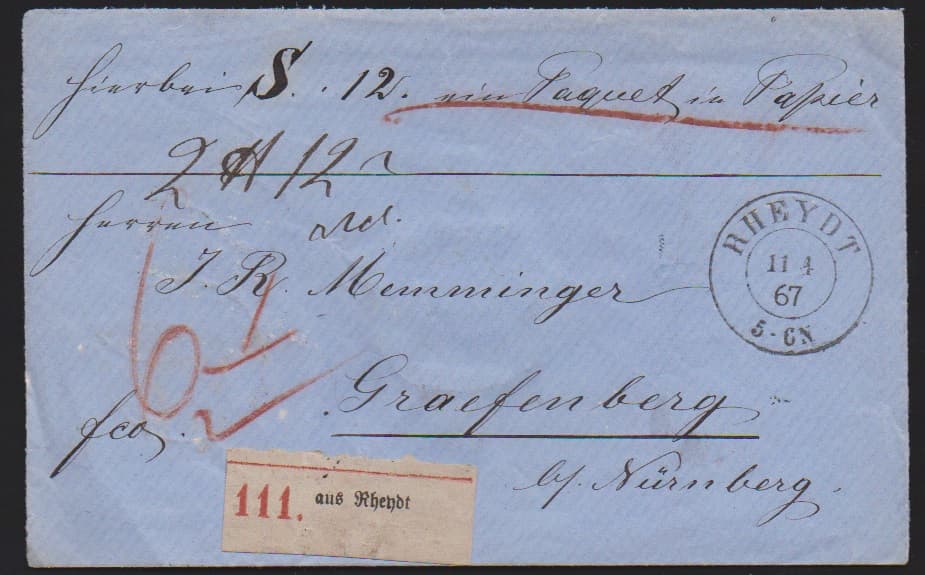 hierbei S. 12. ein Paquet in Papier
2 ℔ 12
Herren
J. R. Memminger
RHEYDT
11 4
67
5-6N
6 1/2
Graefenberg
fco.
b/. Nürnberg.
111. aus Rheydt